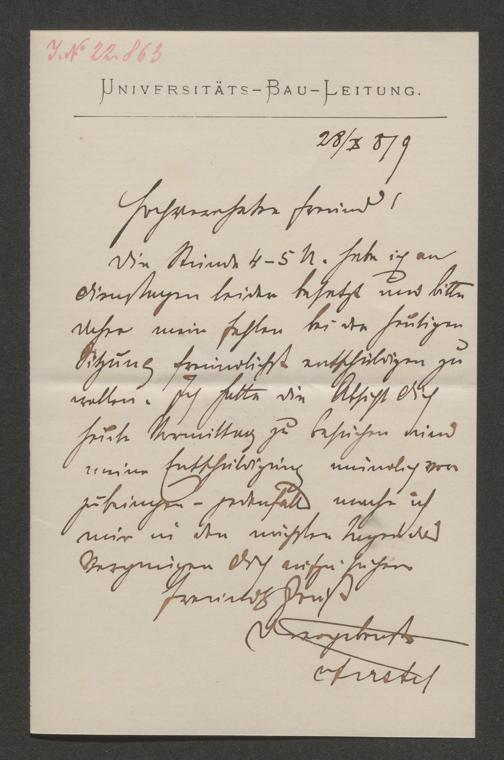 J. N° 22.863
UNIVERSITÄTS-BAU-LEITUNG.
28/X 879
Hochverehrter Freund!
Die Stunde 4-5 U. habe ich an
Dienstagen leider besetzt und bitte
daher mein Fehlen bei der heutigen
Sitzung freundlichst entschuldigen zu
wollen. Ich hatte die Absicht Dich
heute Vormittag zu besuchen und
meine Entschuldigung mündlich vor
zubringen - jedenfalls mache ich
mir in den nächsten Tagen das
Vergnügen Dich aufzusuchen
Freundl Gruß
ergebenst
Ferstel